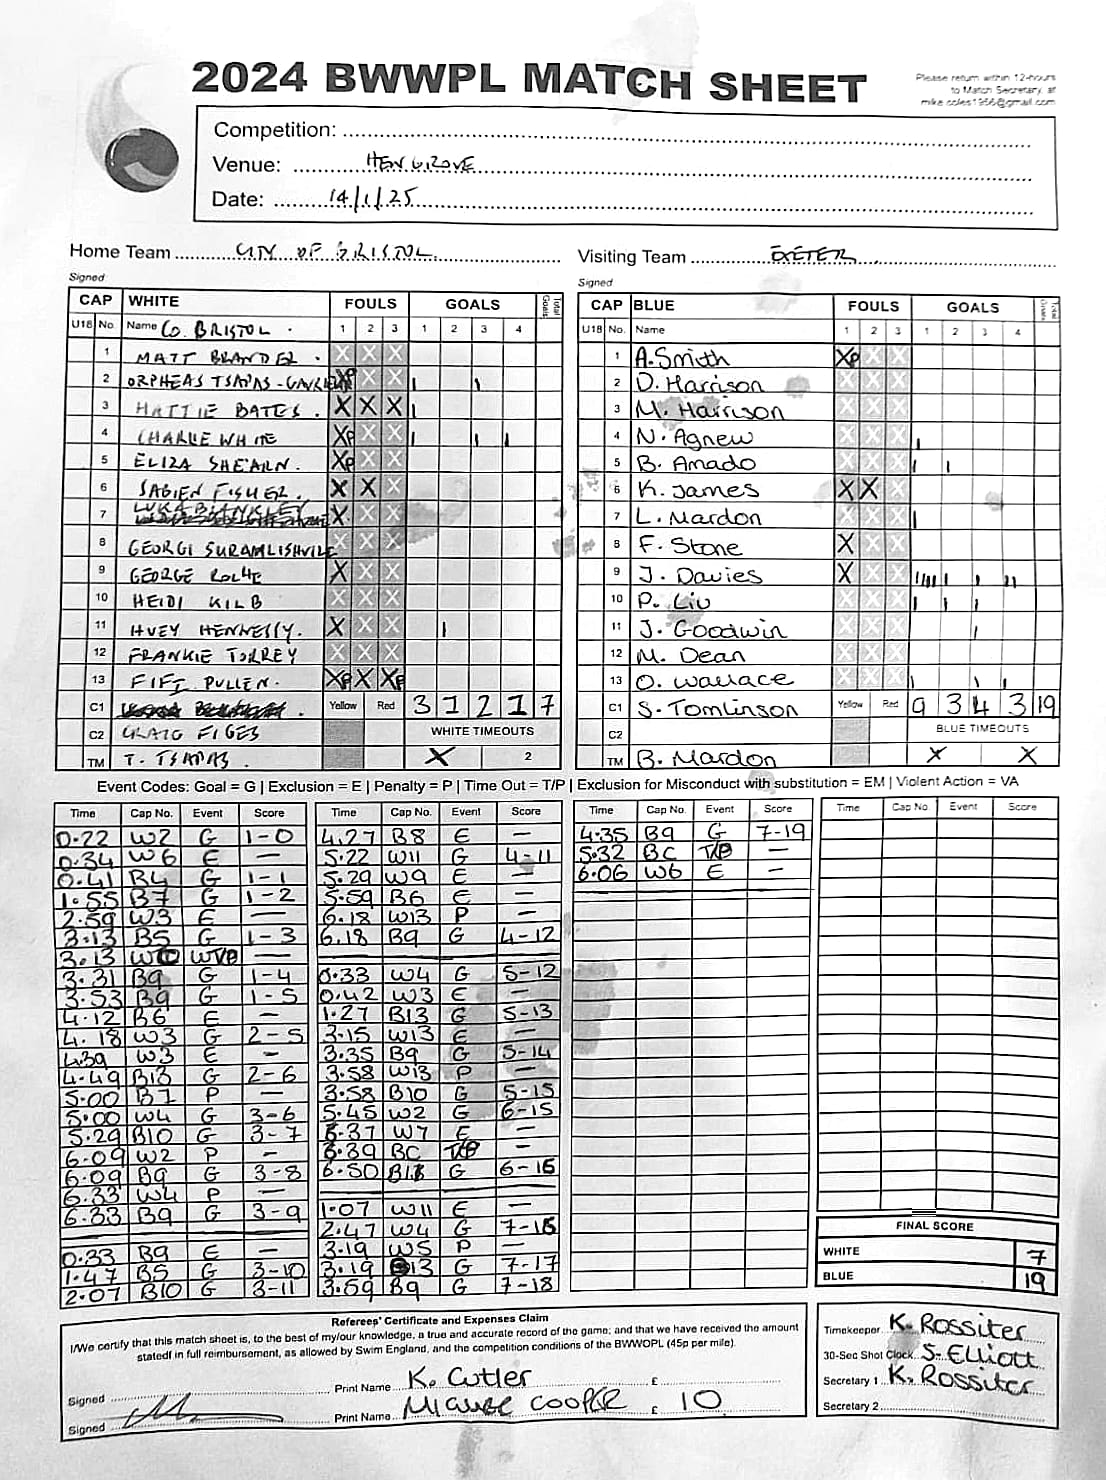 2024 BWWPL MATCH SHEET
Please return within 12-hours
to Match Secretary, at
mike.coles1956@gmail.com
Competition:
Venue: HENGROVE
Date: 14/1/25
Home Team CITY OF BRISTOL
Visiting Team EXETER
Signed
Signed
CAP WHITE FOULS GOALS Total Goals
U18 No. Name CO. BRISTOL. 1 2 3 1 2 3 4
1 MATT BRANDER.
2 ORPHEAS TSAPAS-GAVRIEL XP X X
3 HATTIE BATES. X X X
4 CHARLIE WHITE XP X X
5 ELIZA SHEARN. XP X X
6 SABIEN FISHER. X X X
7 LUKA BLANKLEY X X X
8 GEORGI SURAMLISHVILI X X X
9 GEORGE ROCHE X X X
10 HEIDI KILB X X X
11 HUEY HENNESSY. X X X
12 FRANKIE TORREY X X X
13 FIFI PULLEN. XP X XP
C1 Yellow Red 3 1 2 1 7
C2 CRAIG FIGES WHITE TIMEOUTS
TM T. TSAPAS. X 2
CAP BLUE FOULS GOALS Total Goals
U18 No. Name 1 2 3 1 2 3 4
1 A. Smith XP X X
2 D. Harrison X X X
3 M. Harrison X X X
4 N. Agnew X X X
5 B. Amado X X X
6 K. James X X X
7 L. Mardon X X X
8 F. Stone X X X
9 J. Davies X X X
10 P. Liu X X X
11 J. Goodwin X X X
12 M. Dean X X X
13 O. Wallace X X X
C1 S. Tomlinson Yellow Red 9 3 4 3 19
C2 BLUE TIMEOUTS
TM B. Mardon X X
Event Codes: Goal = G | Exclusion = E | Penalty = P | Time Out = T/P | Exclusion for Misconduct with substitution = EM | Violent Action = VA
Time Cap No. Event Score
0.22 W2 G 1-0
0.34 W6 E —
0.41 B4 G 1-1
1.55 B7 G 1-2
2.59 W3 E —
3.13 B5 G 1-3
3.13 WC T/P —
3.31 B9 G 1-4
3.53 B9 G 1-5
4.12 B6 E —
4.18 W3 G 2-5
4.39 W3 E -
4.49 B13 G 2-6
5.00 B1 P —
5.00 W4 G 3-6
5.29 B10 G 3-7
6.09 W2 P -
6.09 B9 G 3-8
6.33 W4 P —
6.33 B9 G 3-9
0.33 B9 E —
1.47 B5 G 3-10
2.07 B10 G 3-11
Time Cap No. Event Score
4.27 B8 E —
5.22 W11 G 4-11
5.29 W9 E —
5.59 B6 E —
6.18 W13 P —
6.18 B9 G 4-12
0.33 W4 G 5-12
0.42 W3 E —
1.27 B13 G 5-13
3.15 W13 E —
3.35 B9 G 5-14
3.58 W13 P —
3.58 B10 G 5-15
5.45 W2 G 6-15
6.37 W7 E —
6.39 BC T/P —
6.50 B13 G 6-16
1.07 W11 E —
2.47 W4 G 7-16
3.19 W5 P —
3.19 B13 G 7-17
3.59 B9 G 7-18
Time Cap No. Event Score
4.35 B9 G 7-19
5.32 BC T/P —
6.06 W6 E —
Time Cap No. Event Score
FINAL SCORE
WHITE 7
BLUE 19
Referees' Certificate and Expenses Claim
I/We certify that this match sheet is, to the best of my/our knowledge, a true and accurate record of the game; and that we have received the amount
stated in full reimbursement, as allowed by Swim England, and the competition conditions of the BWWOPL (45p per mile).
Signed Print Name K. Cutler £
Signed Print Name COOPER £ 10
Timekeeper K. Rossiter
30-Sec Shot Clock S. Elliott
Secretary 1 K. Rossiter
Secretary 2